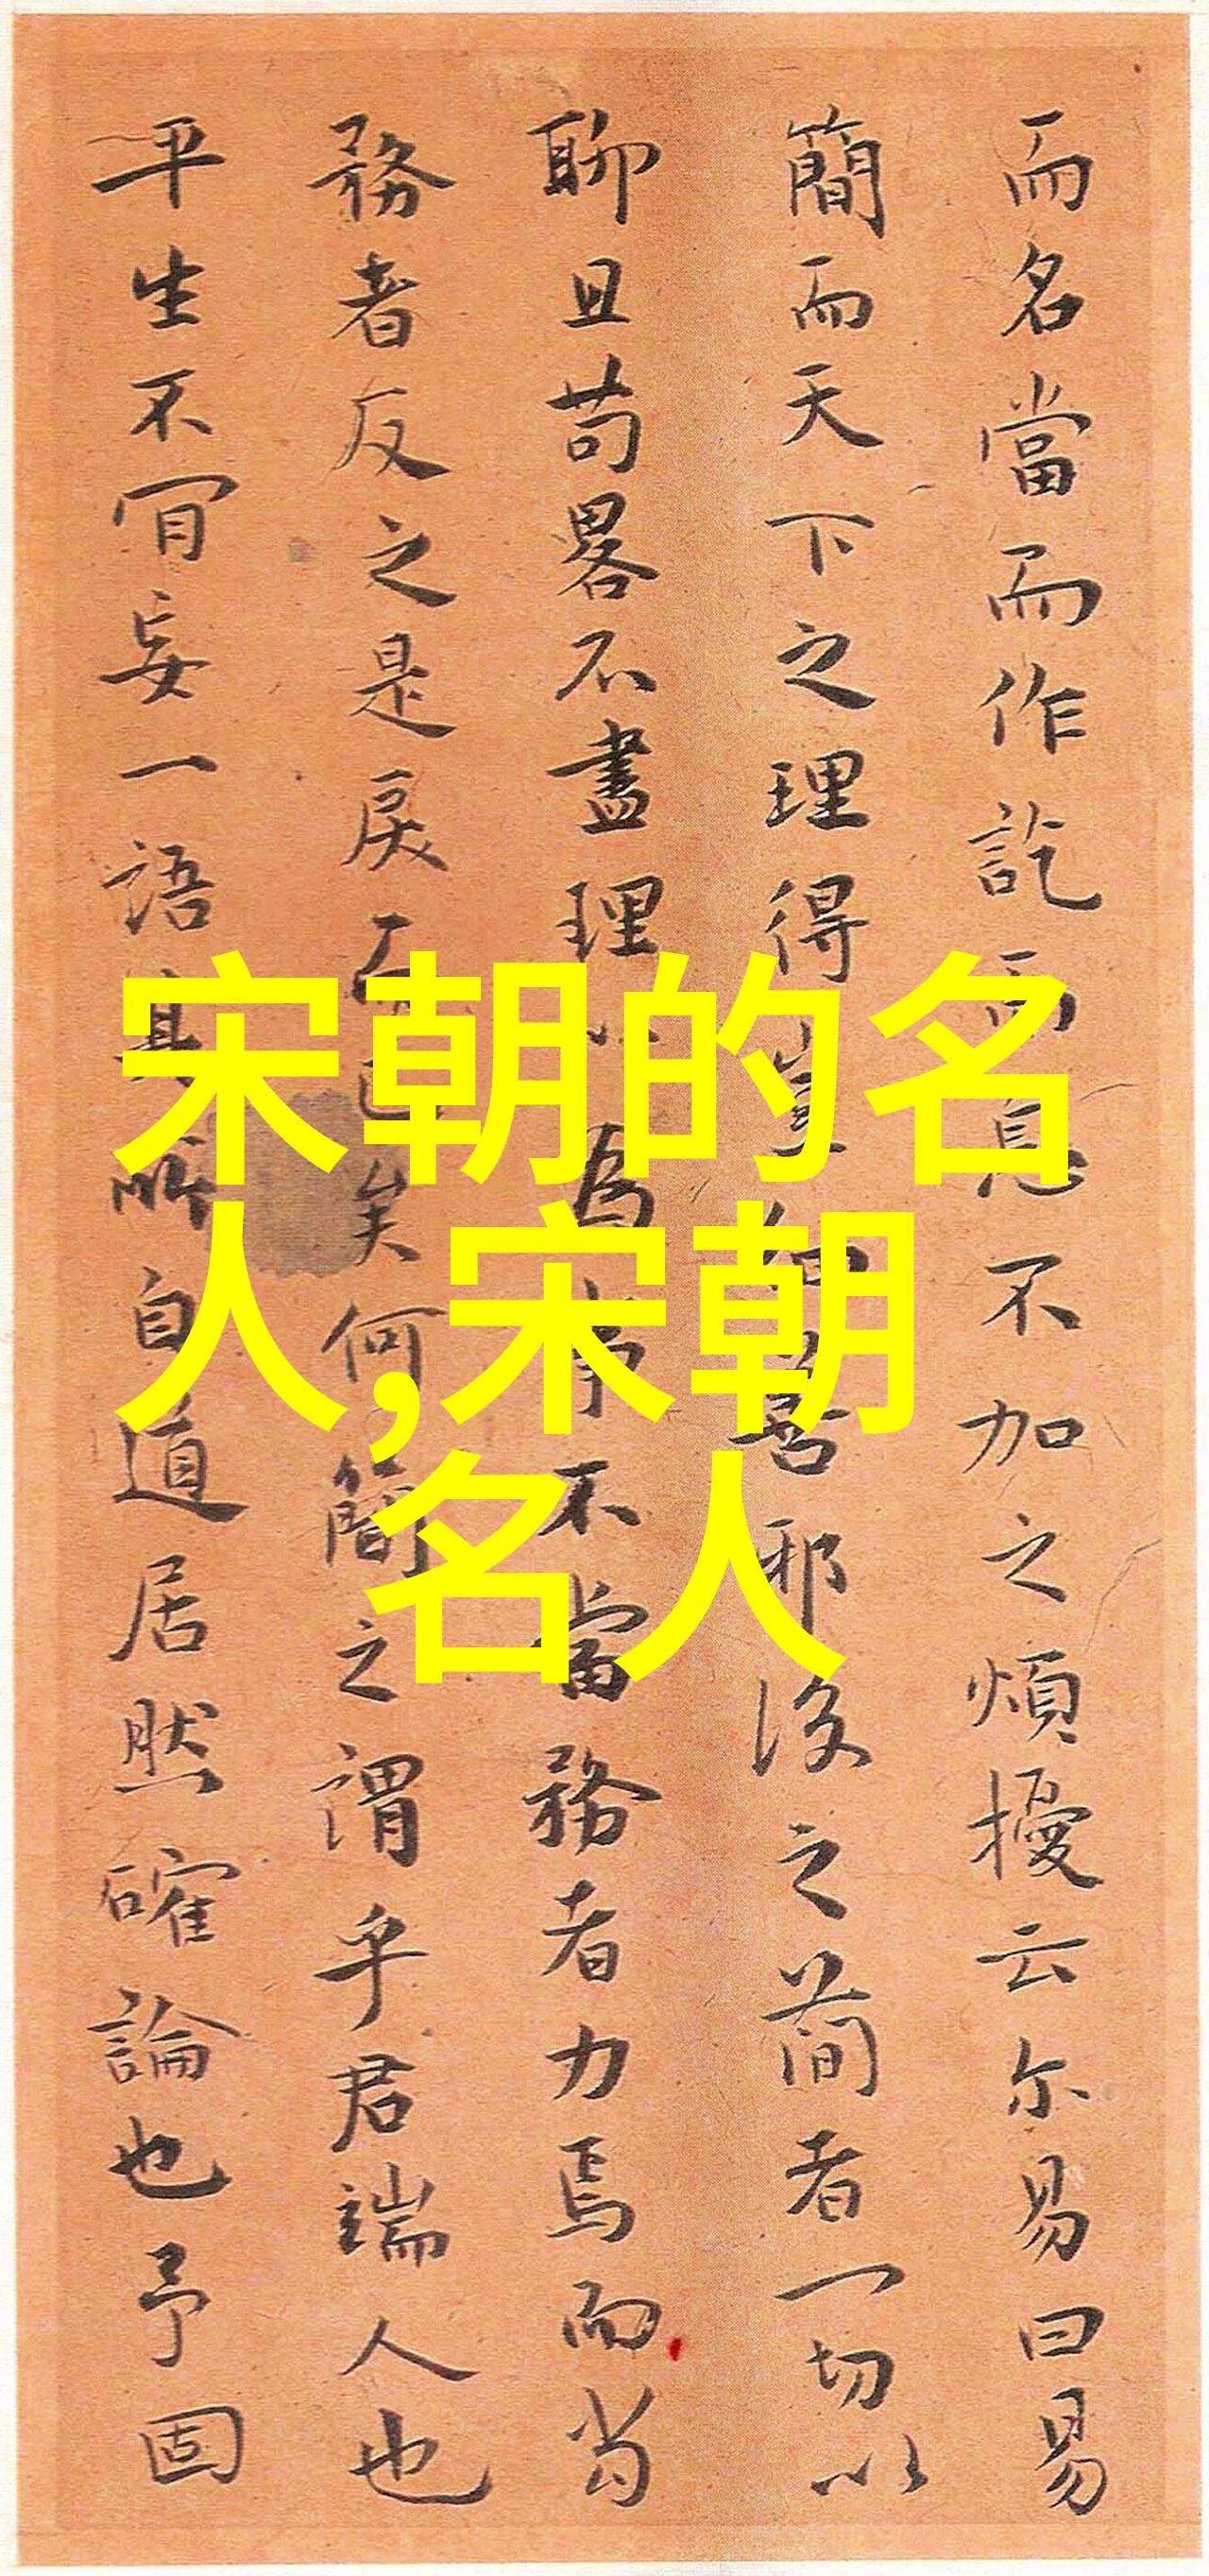 而名當而作訖而息不加之煩擾云尒易曰易
簡而天下之理得善邪後之簡者一切以
聊且苟畧不盡理以為事不當務者力焉而當
務者反之是戾而已矣何簡之謂乎君端人也
平生不肎妄一語其所自道居然確論也予固
宋朝的名
人,宋朝
名人